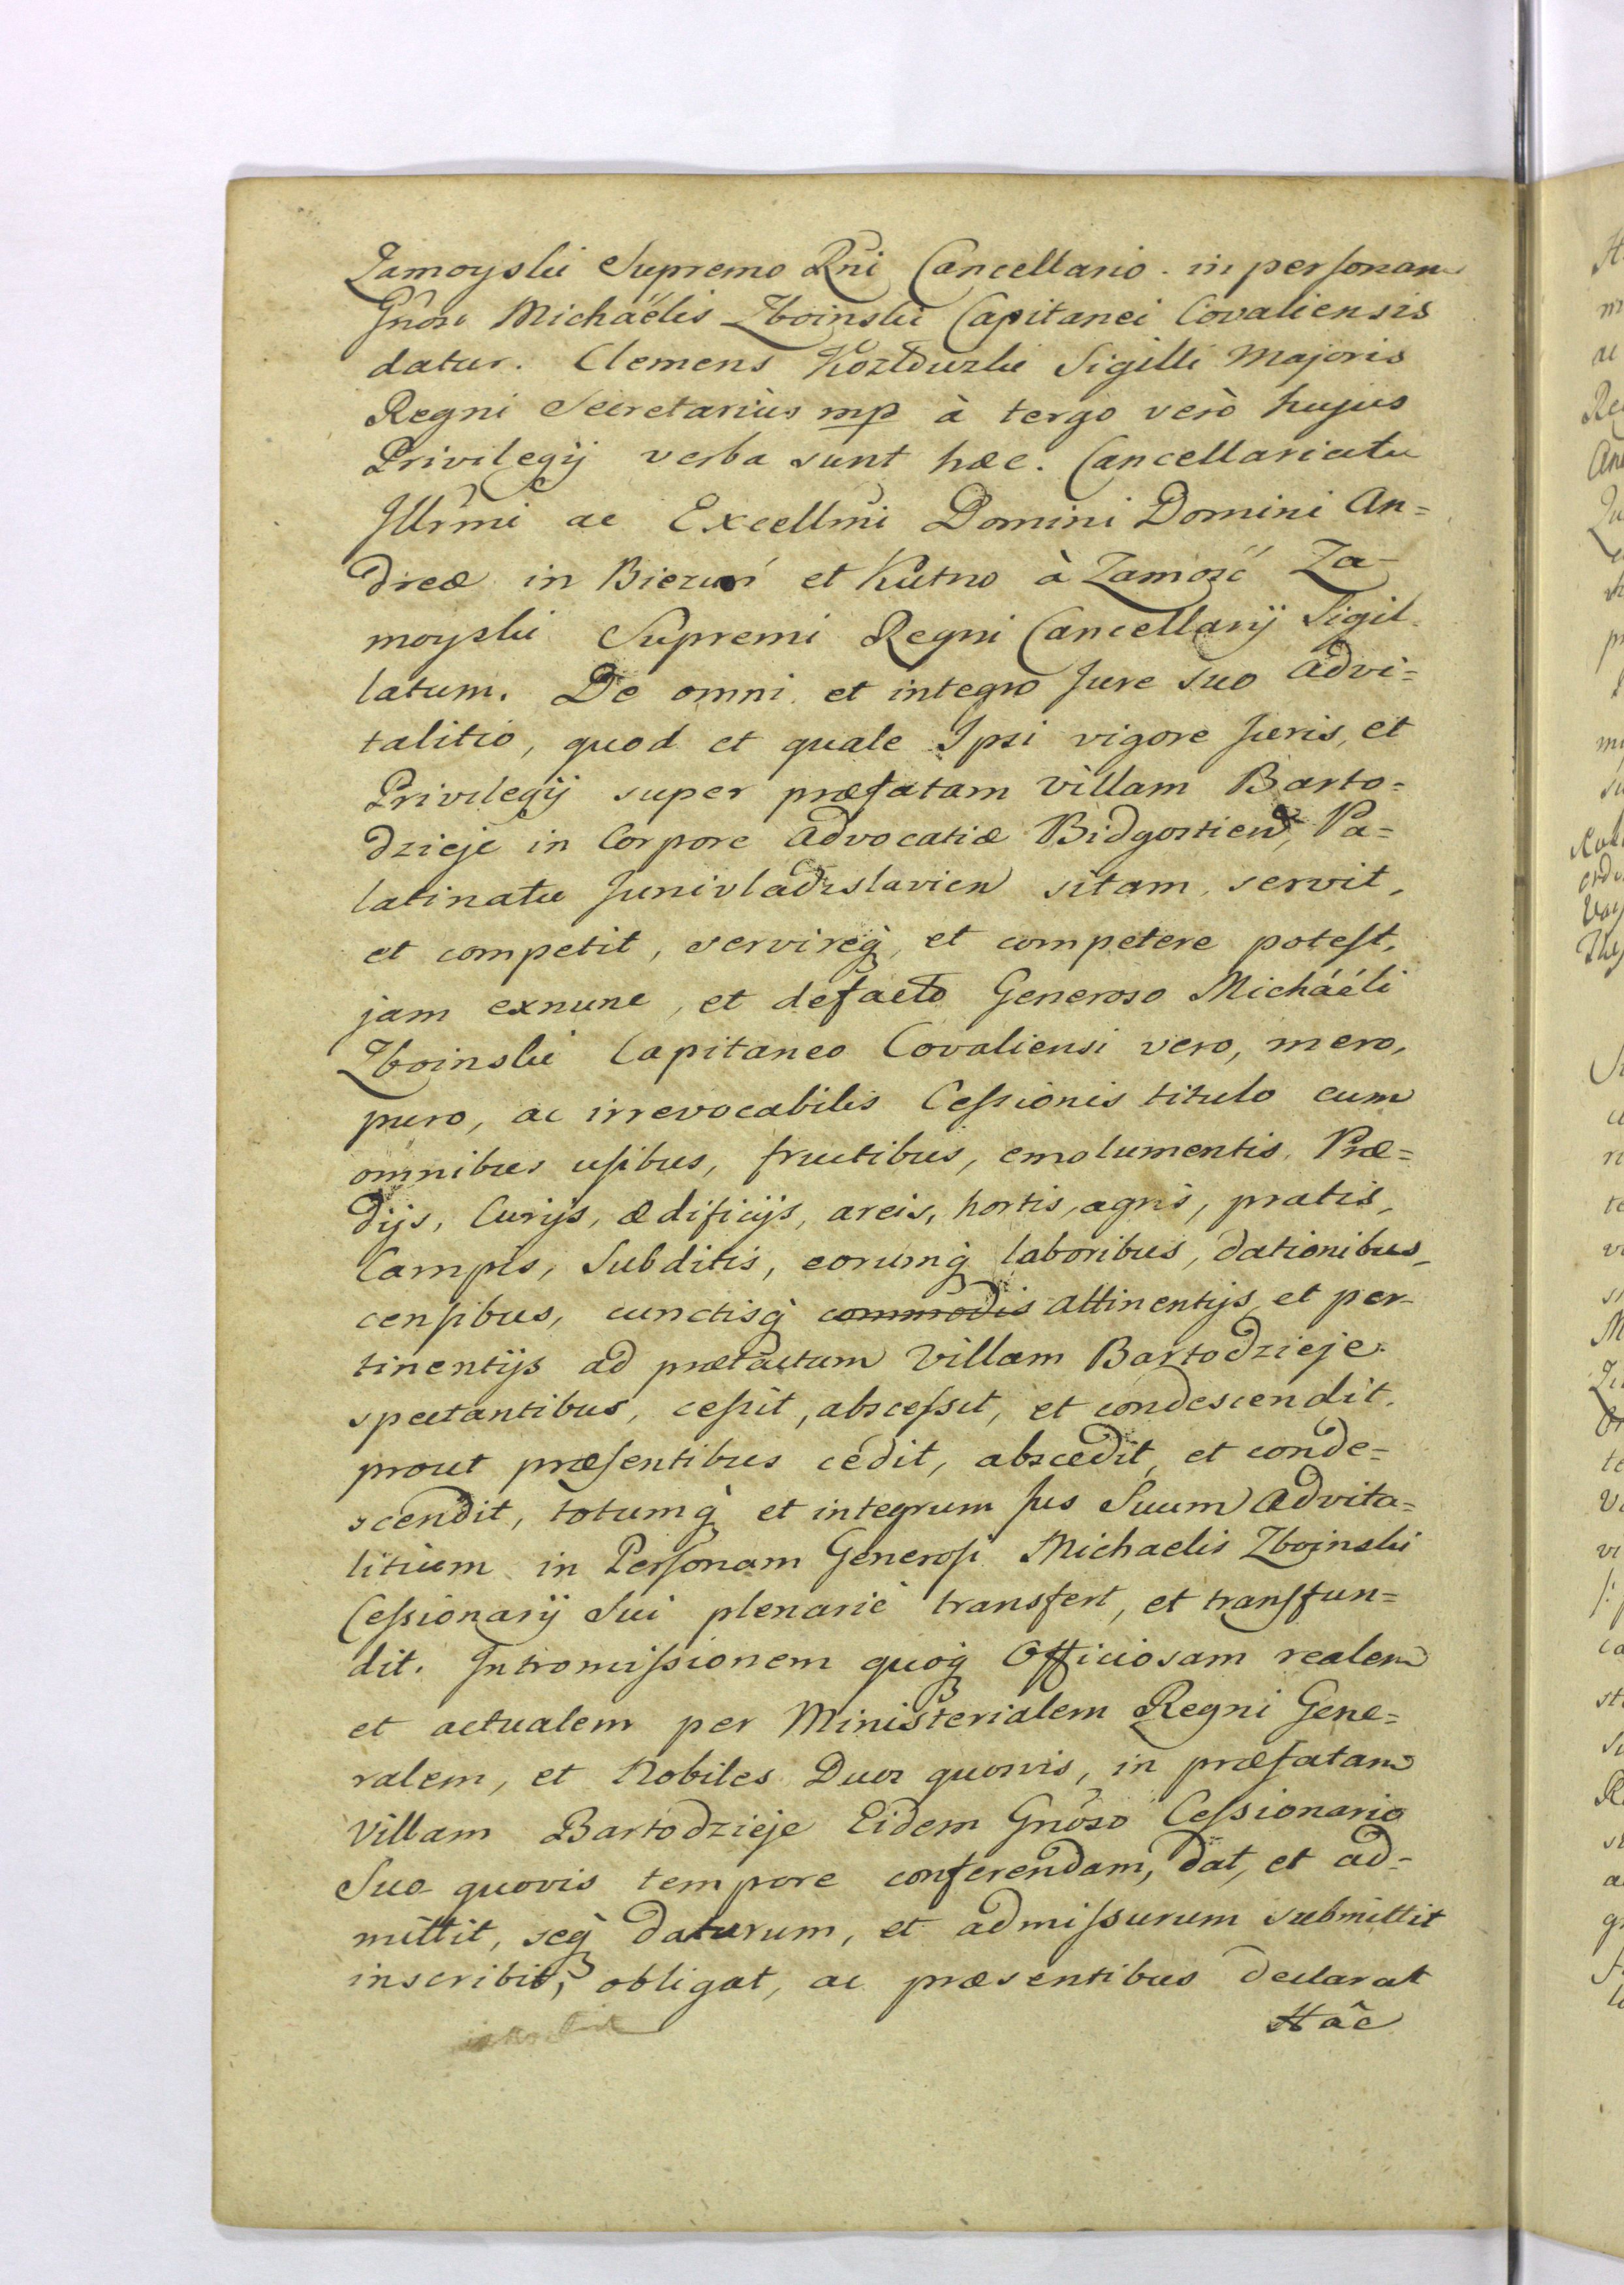 Zamoyski Supremo Rñi Cancellario in perſonam
Gñosi Michaëlis Zboinski Capitanei Covaliensis
datur. Clemens Kozłduzki Sigilli Majoris
Regni Secretarius mp à tergo verò hujus
Privilegij verba sunt hæc. Cancellariatu
Jllr̃mi ac Excellm̃i Domini Domini An=
dreæ in Bieżuń et Kutno à Zamość Za-
moyski Supremi Regni Cancellarij Sigil
latum. De omni et integro Jure suo advi=
talitio, quod et quale Ipsi vigore Juris, et
Privilegij super præfatam villam Barto=
dzieje in Corpore Advocatiæ Bidgostien, Pa=
latinatu Junivladislavien sitam, servit,
et competit, servireq̀, et competere poteſt,
jam exnunc, et defacto Generoso Micháéli
Zboinski Capitaneo Covaliensi vero, mero,
puro, ac irrevocabilis Ceſsionis titulo cum
omnibus uſibus, fructibus, emolumentis, Præ=
dijs, Curijs, ædificijs, areis, hortis, agris, pratis,
Campis, Subditis, eorumq̀ laboribus, dationibus,
cenſibus, cunctisq̀ commodis attinentijs et per-
tinentijs ad prætactam Villam Bartodzieje
spectantibus, ceſsit, absceſsit, et condescendit,
prout præſentibus cedit, abscedit, et conde=
scendit, totumq̀ et integrum Jus Suum Advita=
litium in Perſonam Generoſi Michaelis Zboinski
Ceſsionarij Sui plenariè transfert, et tranſfun=
dit. Intromiſsionem quoq̀ Officiosam realem
et actualem per Ministerialem Regni Gene=
ralem, et Nobiles Duos quosvis, in præfatam
Villam Bartodzieje Eidem Gnõso Ceſsionario
Suo quovis tempore conferendam, dat, et ad=
mittit, seq̀ daturum, et admiſsurum submittit
inscribit, obligat, ac præsentibus declarat
Hâc